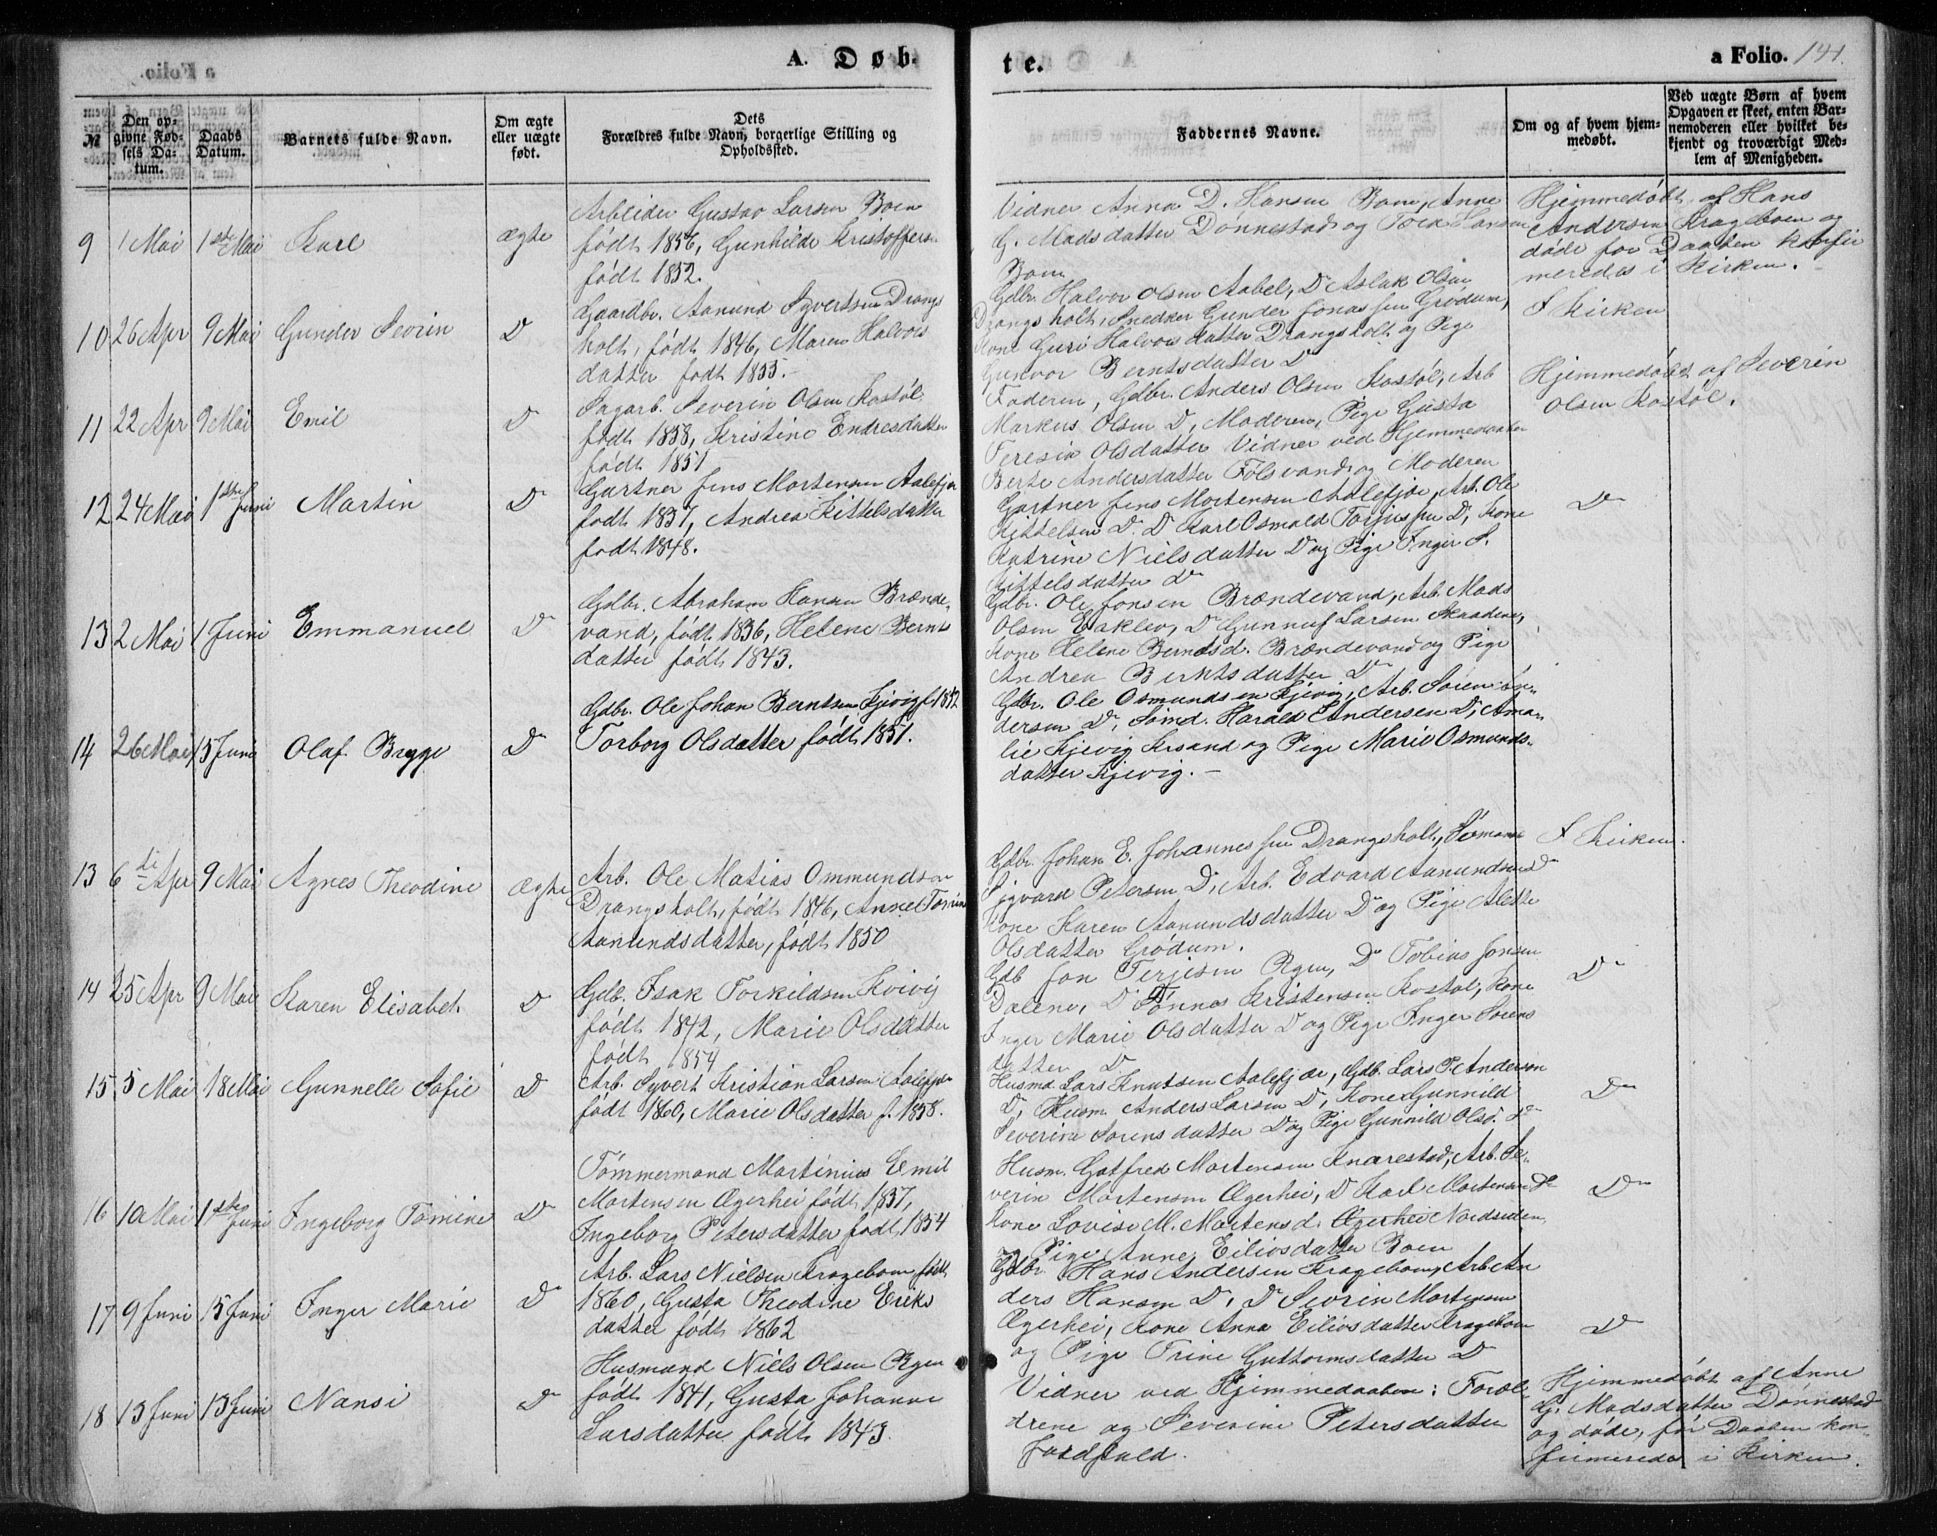 A. Døb-
te.
a Folio. 141.
№
Den op-
givne Fød-
sels Da-
tum.
Daabs
Datum.
Barnets fulde Navn.
Om ægte
eller uægte
født.
Dets
Forældres fulde Navn, borgerlige Stilling og
Opholdssted.
Faddernes Navne.
Om og af hvem hjem-
medøbt.
Ved uægte Børn af hvem
Opgaven er skeet, enten Bar-
nemoderen eller hvilket be-
kjendt og troværdigt Med-
lem af Menigheden.
9 1 Mai 1ste Mai Karl ægte
Arbeider Gustav Larsen Boen
født 1856, Gunhilde Kristoffers
født 1852.
Vidner Anna D. Hansen Boen, Anne
G. Madsdatter Dønnestad og Tora Hansen
Boen
Hjemmedøbt af Hans
Andersen Krageboen og
døde før Daaben konfir
meredes i Kirken.
10 26 Apr 9 Mai Gunder Sevrin D
Gaardbr. Aanund Syvertsen Drangs
holt, født 1846, Maren Halvors
datter født 1855.
Gdbr. Halvor Olsen Aabel, D Aslak Olsen
Drangsholt, Snedker Gunder Jonassen Grødum,
Kone Guri Halvorsdatter Drangsholt og Pige
Gunvor Berntsdatter D
I Kirken
11 22 Apr 9 Mai Emil D
Sagarb. Severin Olsen Kostøl
født 1858, Kristine Endresdatter
født 1851
Faderen, Gdbr. Anders Olsen Kostøl, Arb
Markus Olsen D, Moderen, Pige Gusta
Teresia Olsdatter Vidner ved Hjemmedaaben
Berte Andersdatter Følsvand og Moderen
Hjemmedøbt af Severin
Olsen Kostøl.
12 24 Mai 1ste Juni Martin D
Gartner Jens Mortensen Aalefjær
født 1857, Andrea Kittelsdatter
født 1848.
Gartner Jens Mortensen Aalefjær, Arb. Ole
Kittelsen D. D Karl Osmald Torjussen D, Kone
Katrine Nielsdatter D og Pige Inger S.
Kittelsdatter D
D
13 2 Mai 1 Juni Emmanuel D
Gdbr. Abraham Hansen Brænde-
vand, født 1836, Helene Bernts
datter født 1843.
Gdbr. Ole Jonsen Brændevand, Arb. Mads
Olsen Eaklev, D Gunnuf Larsen Skaadene,
Kone Helene Berntsd. Brændevand og Pige
Andrea Berntsdatter D
14 26 Mai 15 Juni Olaf Brygge D
Gdbr. Ole Johan Berntsen Kjevig f. 1852
Torborg Olsdatter født 1851.
Gdbr. Ole Osmundsen Kjevig, Arb. Søren An-
dersen D, Sømd. Harald Andersen D, Ama-
lie Kjevig Krsand og Pige Marie Osmunds-
datter Kjevig. –
13 6di Apr 9 Mai Agnes Theodine Ægte
Arb. Ole Matias Ommundsen
Drangsholt, født 1846, Anne Tomine
Aanundsdatter, født 1850
Gdbr. Johan E. Johannessen Drangsholt, Sømand
Sigvard Petersen D, Arb. Edvard Aanundsen D
Kone Karen Aanundsdatter D og Pige Alette
Olsdatter Grødum.
I Kirken.
14 25 Apr 9 Mai Karen Elisabet D
Gdb. Isak Torkildsen Kvivig
født 1842, Marie Olsdatter
født 1854
Gdb Jon Terjesen Rgen, D Tobias Jonsen
Dalene, D Tønnes Kristensen Kostøl, Kone
Inger Marie Olsdatter D og Pige Inger Sørens
datter D
D
15 5 Mai 18 Mai Gunnelle Sofie D
Arb. Syvert Kristian Larsen Aalefjær
født 1860, Marie Olsdatter f. 1858.
Husmd. Lars Knutsen Aalefjær, Gdb. Lars P. Andersen
D, Husm. Anders Larsen D, Kone Gunnild
Severine Sorensdatter D og Pige Gunnild Olsd. D
D
16 10 Mai 1ste Juni Ingeborg Tomine D
Tømmermand Martinius Emil
Mortensen Ægerhei født 1857,
Ingeborg Petersdatter født 1854
Husm. Gotfred Mortensen Knarestad, Arb. Se-
verin Mortensen Ægerhei, D Karl Mortensen D
Kone Lovise M. Mortensd. Ægerhei Nordsiden,
og Pige Anne Eilivsdatter Boen
D
17 9 Juni 15 Juni Inger Marie D
Arb. Lars Nielsen Krageboen født
1860, Gusta Theodine Eriks
datter født 1862
Gdbr. Hans Andersen Krageboen, Arb. An
ders Hansen D, D Sevrin Mortensen
Ægerhei, Kone Anna Eilivsdatter Krageboen
og Pige Trine Guttormsdatter D
D
18 13 Juni 13 Juni Nansi D
Husmand Niels Olsen Rgen
født 1841, Gusta Johanne
Larsdatter født 1843.
Vidner ved Hjemmedaaben: Foræl-
drene og Severine Petersdatter
Jordfald.
Hjemmedøbt af Anne
G. Madsdatter Dønnestad
og døde, før Daaben kon-
firmeredes i Kirken.